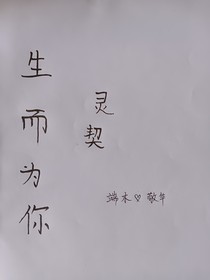 生而为你
灵契
端木♡敬华